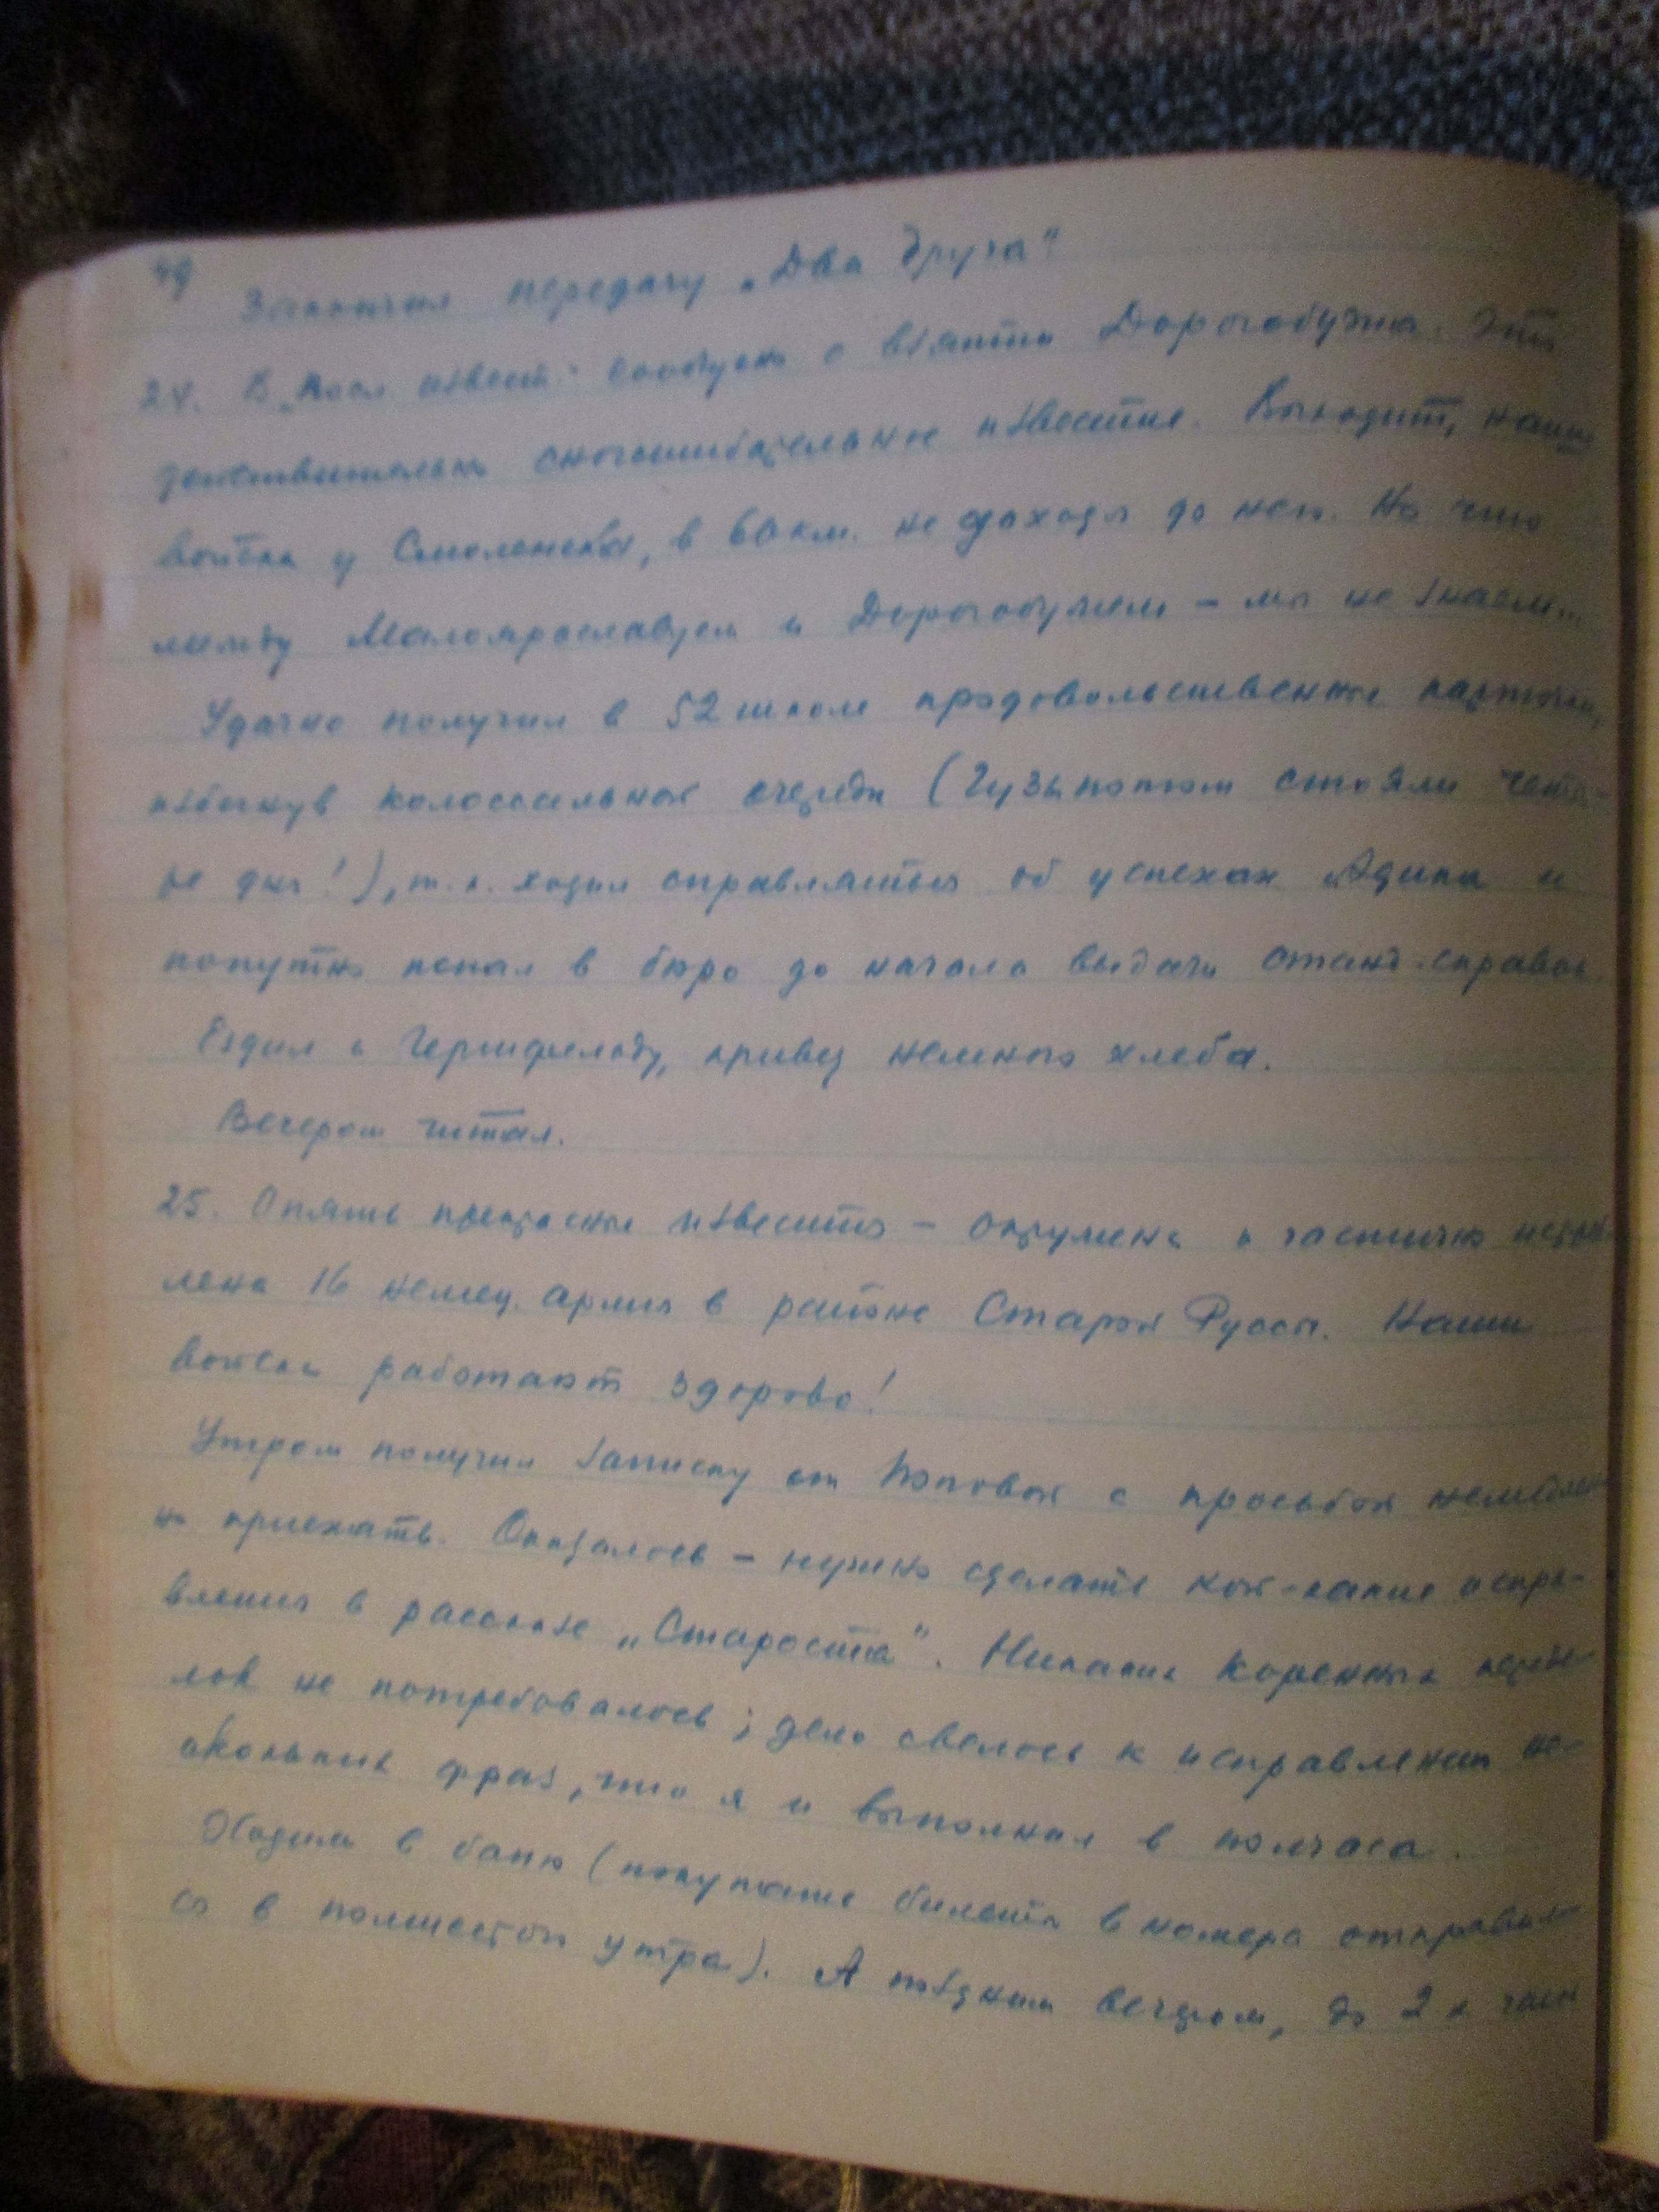 49
Закончил передачу „Два друга"
24. В „Посл. извест." сообщено о взятии Дорогобужа. Это
действительно сногсшибательное известие. Выходит, наши
войска у Смоленска, в 60 км. не доходя до него. Но что
между Малоярославцем и Дорогобужем – мы не знаем...
Удачно получил в 52 школе продовольственные карточки,
избегнув колоссальной очереди (Гузы потом стояли четы-
ре дня!), т.к. ходил справляться об успехах Адика и
попутно попал в бюро до начала выдачи станд. справок.
Ездил к Гершфельду, привез немного хлеба.
Вечером читал.
25. Опять прекрасные известия – окружена и частично истреб-
лена 16 немец. армия в районе Старой Руссы. Наши
войска работают здорово!
Утром получил записку от Поповой с просьбой немедлен-
но приехать. Оказалось – нужно сделать кой-какие испра-
вления в рассказе „Староста". Никаких коренных переде-
лок не потребовалось; дело свелось к исправлению не-
скольких фраз, что я и выполнил в полчаса.
Ходили в баню (покупать билеты в номера отправил-
ся в полшестого утра). А поздним вечером, до 2 х часов